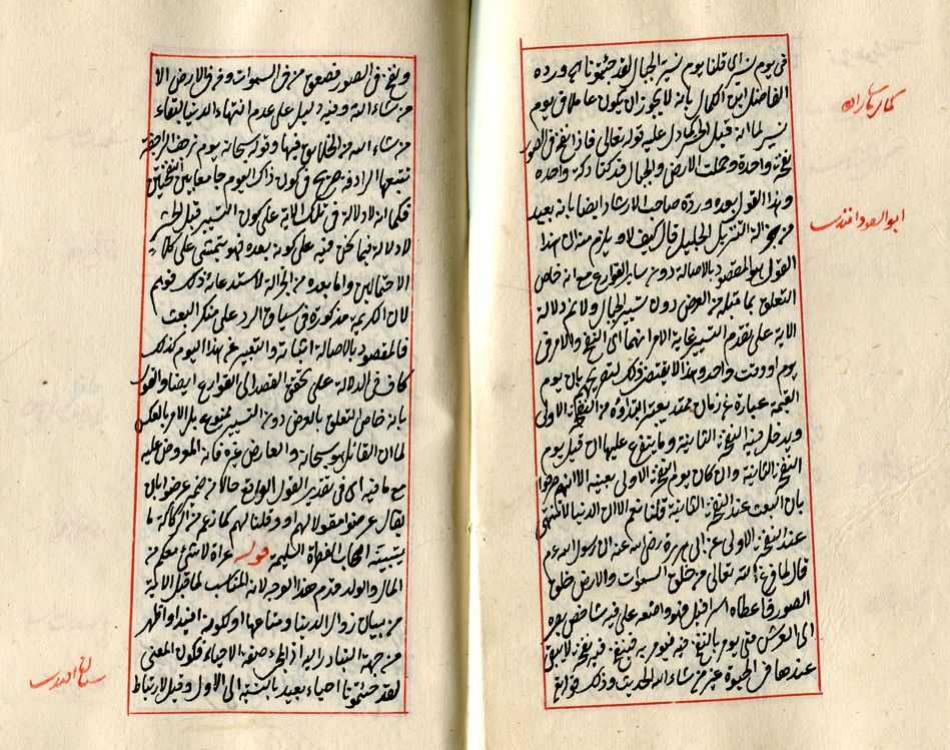 فى يوم نسير اى قلنا يوم نسير الجبال لقد جئتمونا اهـ ورده
الفاضل ابن الكمال بانه لا يجوز ان يكون عاملا فى يوم
نسير لما انه قبل الحشر كما دل عليه قوله تعالى فاذا نفخ فى الصور
نفخة واحدة وحملت الارض والجبال فدكتا دكة واحدة
وهذا القول بعده ورده صاحب الارشاد ايضا بانه بعيد
من جزالة التنزيل الجليل قال كيف لا ويلزم منه ان هذا
القول هو المقصود بالاصالة دون ساير القوارع مع انه خاص
التعلق بما قبله من العرض دون تسيير الجبال ولا نم دلالة
الاية على تقدم التسيير غاية الامر انهما اى النفخ والامر فى
يوم او وقت واحد وهذا لا يقتضى ذلك لتصريحهم بان يوم
القيمة عبارة عن زمان ممتد يعتبر ابتداؤه من النفخة الاولى
ويدخل فيه النفخة الثانية وما يتفرع عليها ان قيل يوم
النفخة الثانية وان كان يوم النفخة الاولى بعينه الا انهم صرحوا
بان البعث عند النفخة الثانية قلنا نعم الا ان الدنيا لا تنتهى
عند النفخة الاولى عن ابى هريرة رضى الله عنه ان رسول الله عم
قال لما فرغ الله تعالى من خلق السموات والارض خلق
الصور فاعطاه اسرافيل فهو واضعه على فيه شاخص بصره
الى العرش متى يؤمر بالنفخ فيه فيؤمر به فينفخ فيه نفخة لا يبقى
عندها فى الحيوة غير من شاء الله الحديث وذلك قوله تع
كمال پاشا زاده
ابو السعود افندى
ونفخ فى الصور فصعق من فى السموات ومن فى الارض الا
من شاء الله وفيه دليل على عدم انتهاء الدنيا لبقاء
من شاء الله من الخلايق فيها وقوله سبحانه يوم ترجف الراجفة
تتبعها الرادفة صريح فى كون ذاك اليوم جامعا بين النفختين
فكما انه لا دلالة فى تلك الاية على كون التسيير قبل الحشر
لا دلالة فيما نحن فيه على كونه بعده فهو يتمشى على كلا
الاحتمالين واما بعده من الجزالة لاستدعائه ذلك فوهم
لان الكريمة مذكورة فى سياق الرد على منكر البعث
فالمقصود بالاصالة اثباته والتعبير عن هذا اليوم كذلك
كاف فى الدلالة على تحقق القصد الى القوارع ايضا والقول
بانه خاص التعلق بالعرض دون التسيير ممنوع بل الامر بالعكس
لما ان القائل هو سبحانه والعارض غيره فانه المعروض عليه
مع ما فيه اى فى تقدير القول الواقع حالا من ضمير عرضوا بان
يقال عرضوا مقولا لهم او وقلنا لهم كما زعم من الركاكة ما
يتبينه اصحاب الفطرة السليمة قوله عراة لا شئ معكم من
المال والولد قدم هذا الوجه لانه المناسب لما قبل الاية
من بيان زوال الدنيا ومتاعها او لكونه افيد او اظهر
من جهة التبادر اليه اذ المجئ صفة الاحياء فكون المعنى
لقد جئتمونا احياء بعيد بالنسبة الى الاول وقيل لارتباط
سنان افندى